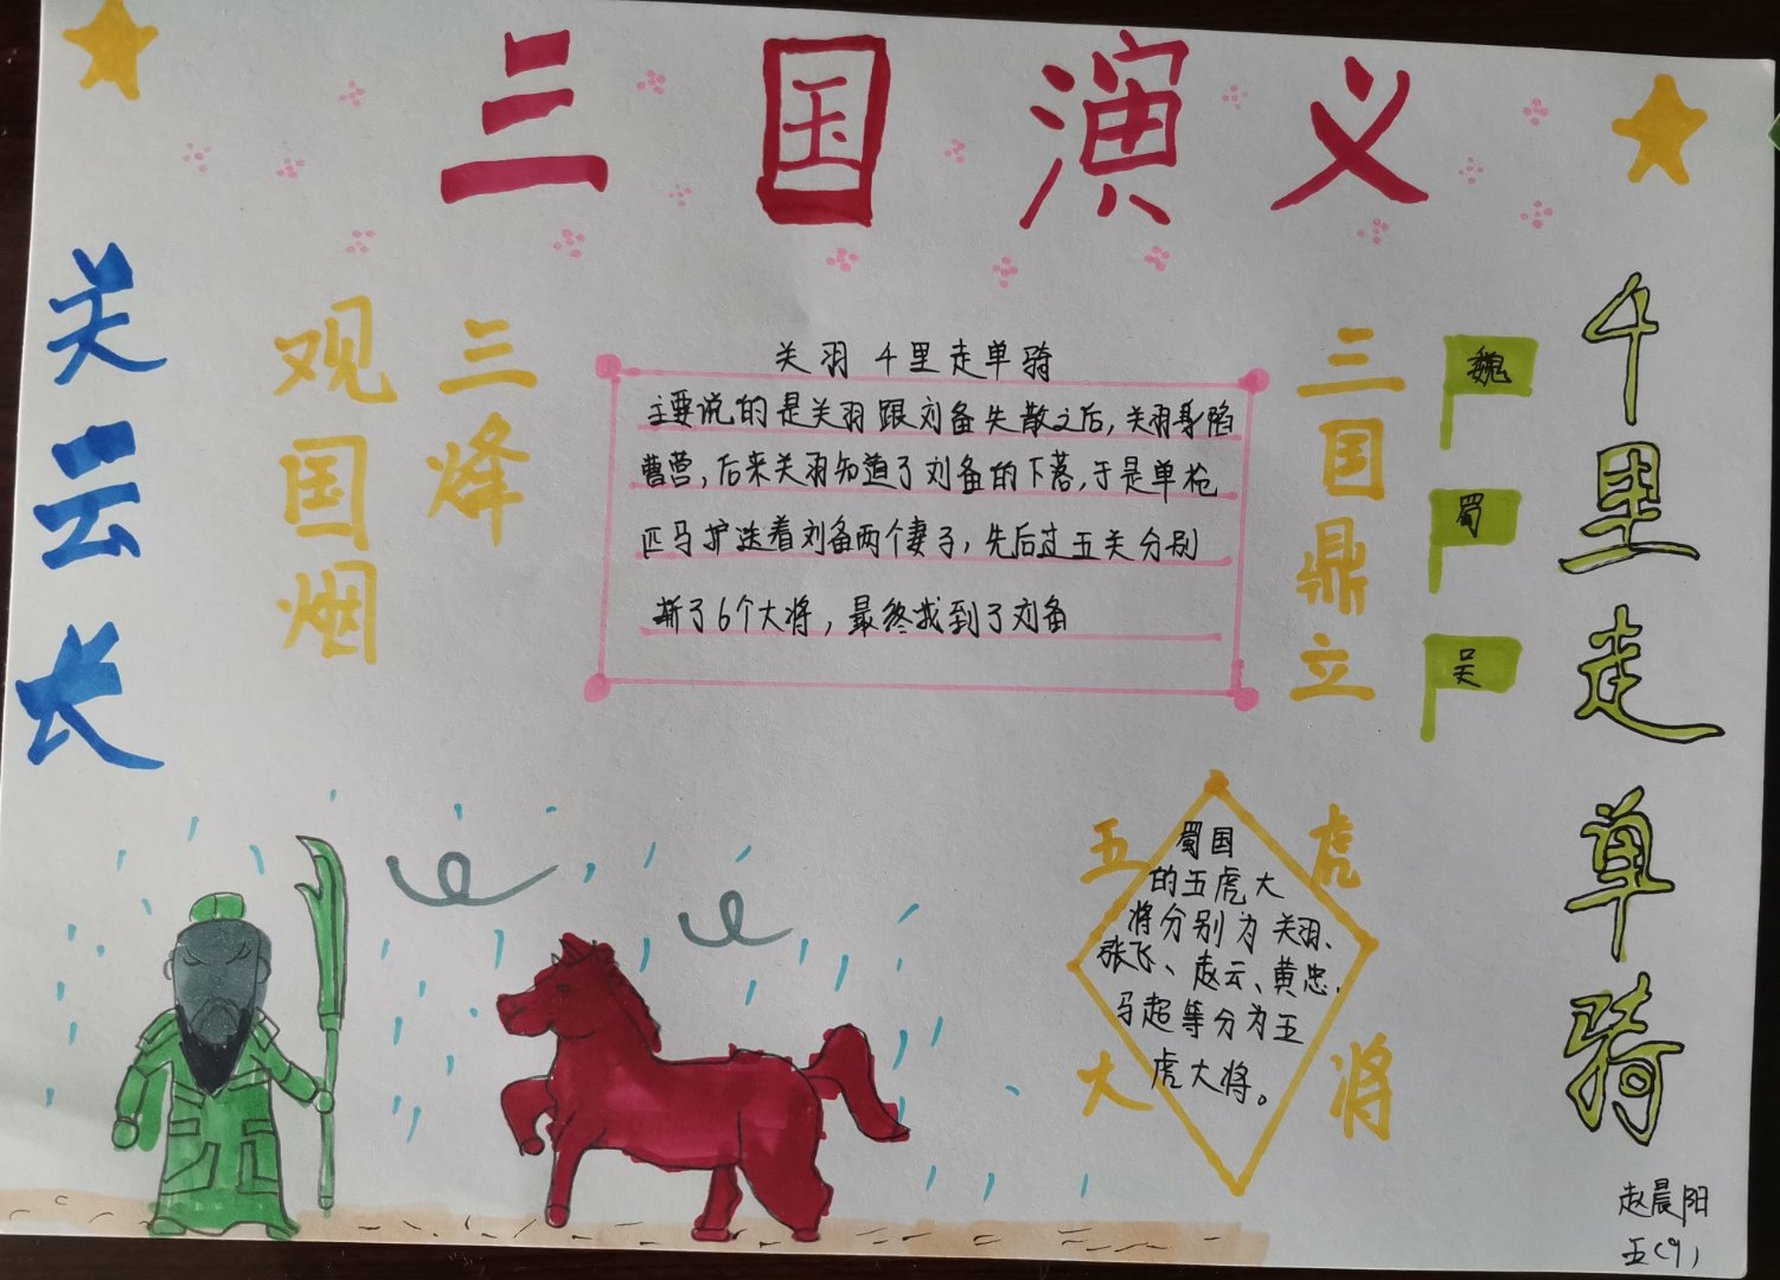 三国演义
关云长
观三
国烽
烟
三国鼎立
魏
蜀
吴
千里走单骑
关羽 千里走单骑
主要说的是关羽跟刘备失散之后,关羽身陷
曹营,后来关羽知道了刘备的下落,于是单枪
匹马护送着刘备两个妻子,先后过五关分别
斩了6个大将,最终找到了刘备
五虎
大将
蜀国
的五虎大
将分别为关羽、
张飞、赵云、黄忠、
马超等分为五
虎大将。
赵晨阳
五(9)